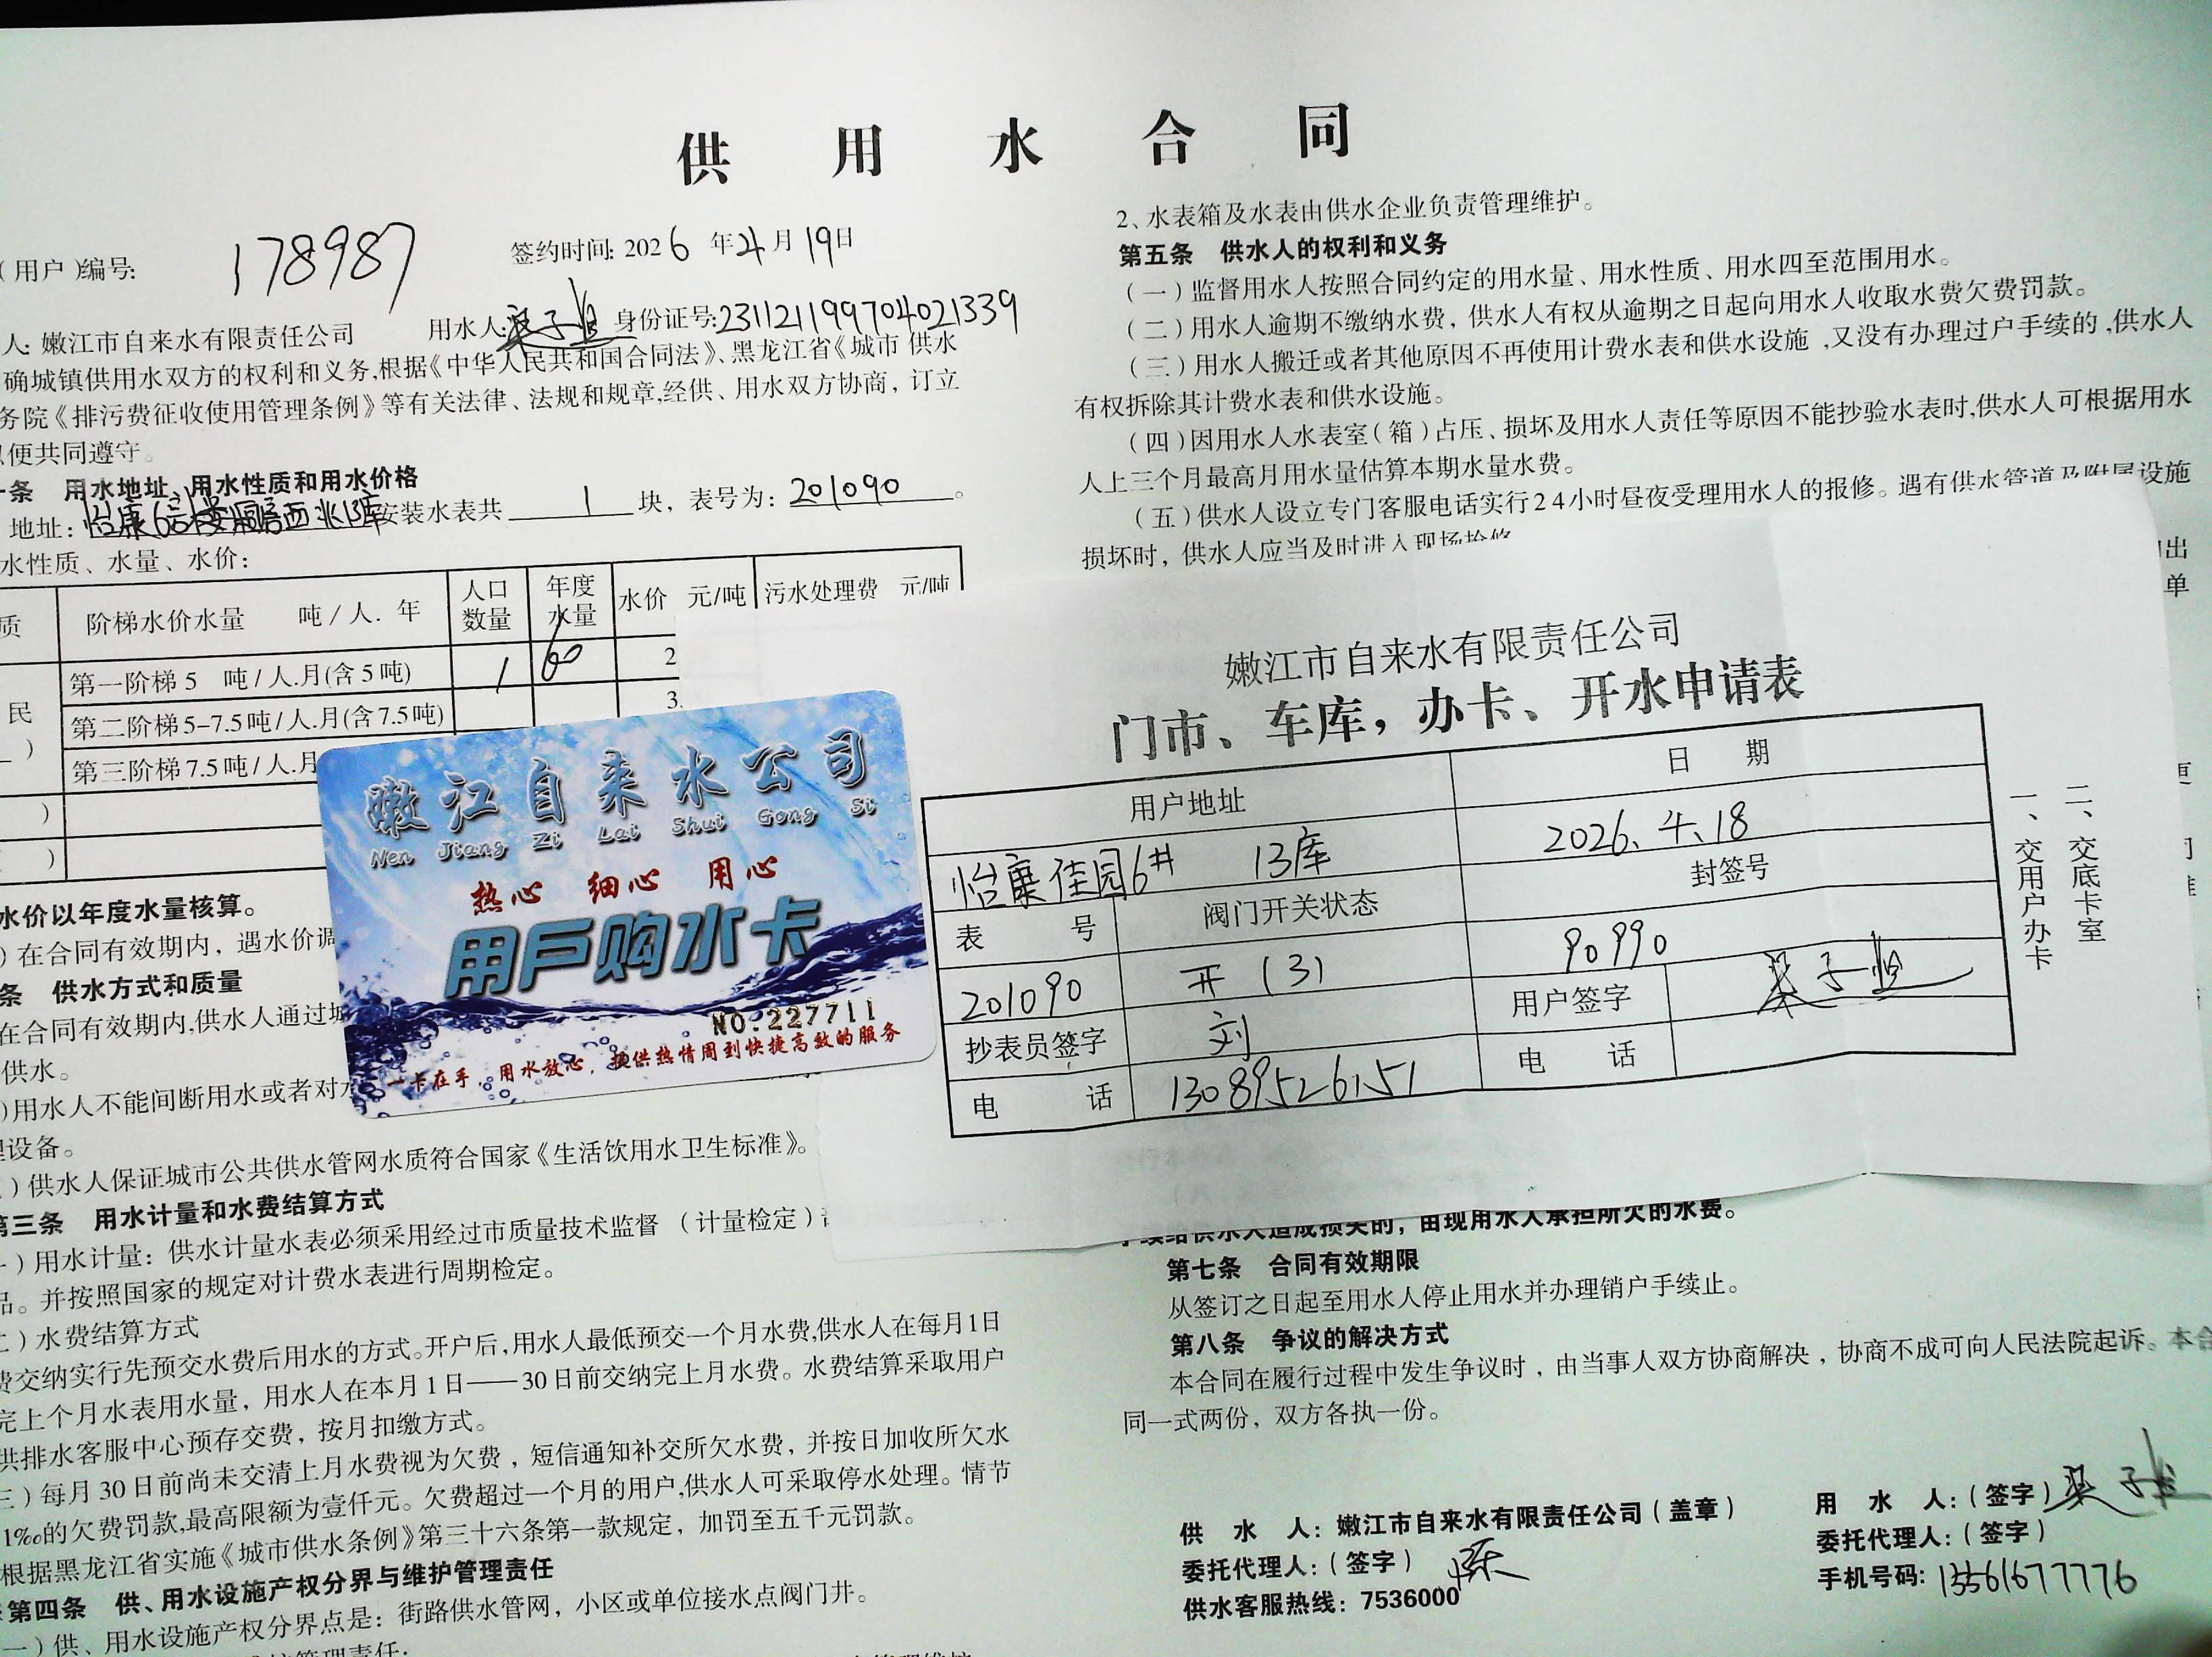 供用水合同
(用户)编号: 178987
签约时间: 2026年4月19日
人: 嫩江市自来水有限责任公司 用水人: 梁子 身份证号: 231121199704021339
确城镇供用水双方的权利和义务,根据《中华人民共和国合同法》、黑龙江省《城市 供水
务院《排污费征收使用管理条例》等有关法律、法规和规章,经供、用水双方协商，订立
便共同遵守。
条 用水地址、用水性质和用水价格
地址: 怡康6 西 13库 安装水表共 1 块，表号为: 201090 。
水性质、水量、水价:
质 阶梯水价水量 吨/人. 年 人口数量 年度水量 水价 元/吨 污水处理费 元/吨
民 第一阶梯 5 吨/人.月(含 5 吨) 1 60 2
第二阶梯 5-7.5吨/人.月(含 7.5 吨) 3.
) 第三阶梯 7.5 吨/人.月
)
)
水价以年度水量核算。
)在合同有效期内，遇水价调
条 供水方式和质量
在合同有效期内,供水人通过城
供水。
)用水人不能间断用水或者对水
设备。
)供水人保证城市公共供水管网水质符合国家《生活饮用水卫生标准》。
第三条 用水计量和水费结算方式
)用水计量：供水计量水表必须采用经过市质量技术监督 (计量检定)
品。并按照国家的规定对计费水表进行周期检定。
)水费结算方式
费交纳实行先预交水费后用水的方式。开户后,用水人最低预交一个月水费,供水人在每月1日
完上个月水表用水量，用水人在本月 1 日——30 日前交纳完上月水费。水费结算采取用户
供排水客服中心预存交费，按月扣缴方式。
三)每月 30 日前尚未交清上月水费视为欠费，短信通知补交所欠水费，并按日加收所欠水
1‰的欠费罚款,最高限额为壹仟元。欠费超过一个月的用户,供水人可采取停水处理。情节
根据黑龙江省实施《城市供水条例》第三十六条第一款规定，加罚至五千元罚款。
第四条 供、用水设施产权分界与维护管理责任
一)供、用水设施产权分界点是：街路供水管网，小区或单位接水点阀门井。
管理责任:
2、水表箱及水表由供水企业负责管理维护。
第五条 供水人的权利和义务
(一)监督用水人按照合同约定的用水量、用水性质、用水四至范围用水。
(二)用水人逾期不缴纳水费，供水人有权从逾期之日起向用水人收取水费欠费罚款。
(三)用水人搬迁或者其他原因不再使用计费水表和供水设施,又没有办理过户手续的,供水人
有权拆除其计费水表和供水设施。
(四)因用水人水表室(箱)占压、损坏及用水人责任等原因不能抄验水表时,供水人可根据用水
人上三个月最高月用水量估算本期水量水费。
(五)供水人设立专门客服电话实行24小时昼夜受理用水人的报修。遇有供水管道及附属设施
损坏时，供水人应当及时进入现场抢修
出
单
嫩江市自来水有限责任公司
门市、车库，办卡、开水申请表
用户地址 日 期
怡康佳园6# 13库 2026.4.18
表 号 阀门开关状态 封签号
201090 开 (3) 90990
抄表员签字 刘 用户签字 梁子
电 话 13089526151 电 话
一、交用户办卡
二、交底卡室
嫩江自来水公司
Nen Jiang Zi Lai Shui Gong Si
热心 细心 用心
用戶购水卡
NO.227711
一卡在手，用水放心，提供热情周到快捷高效的服务
手续给供水人造成损失的，由现用水人承担所欠的水费。
第七条 合同有效期限
从签订之日起至用水人停止用水并办理销户手续止。
第八条 争议的解决方式
本合同在履行过程中发生争议时，由当事人双方协商解决，协商不成可向人民法院起诉。本合
同一式两份，双方各执一份。
供 水 人: 嫩江市自来水有限责任公司(盖章)
委托代理人:(签字) 陈
供水客服热线: 7536000
用 水 人:(签字) 梁子
委托代理人:(签字)
手机号码: 13561677776